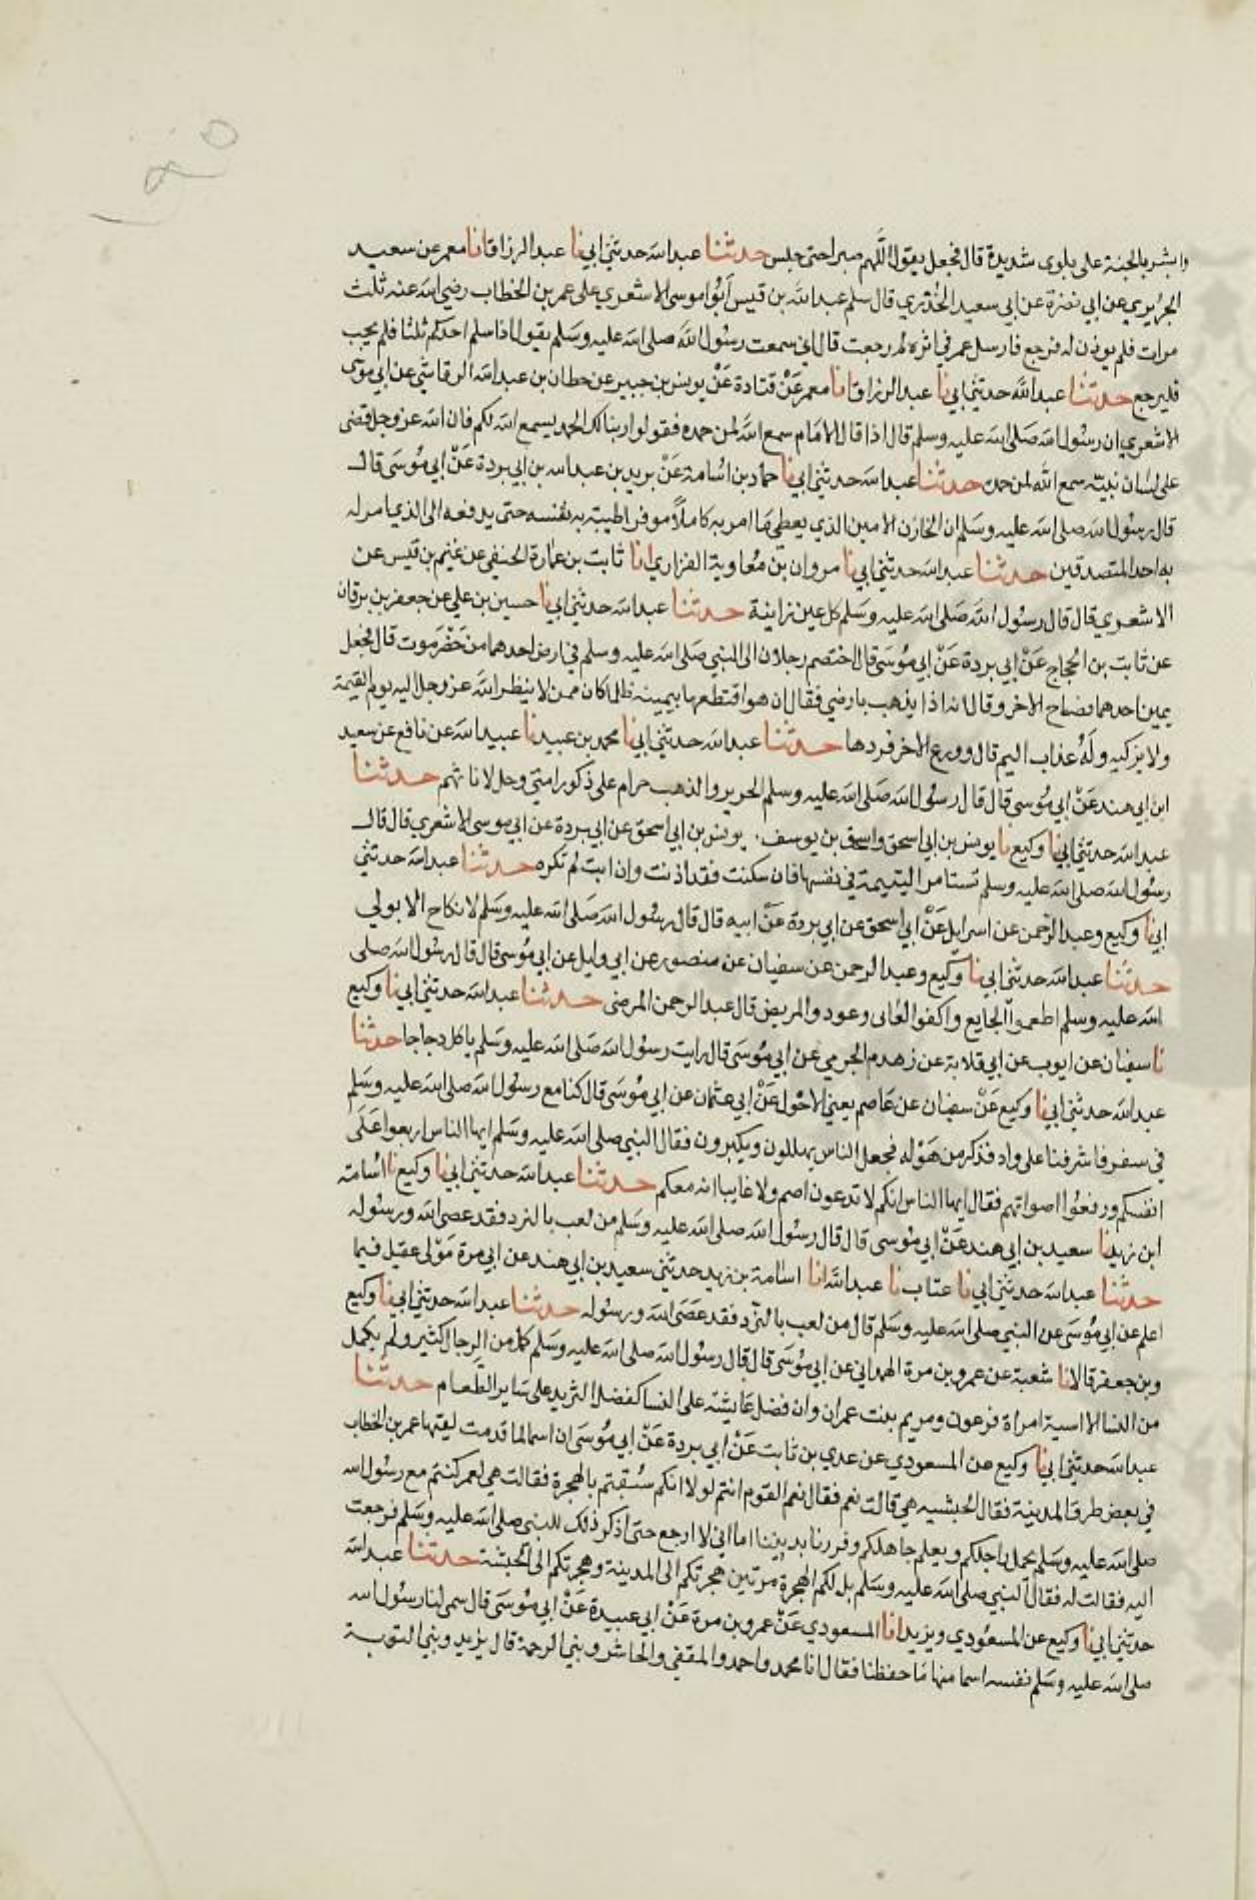 وابشر بالجنة على بلوى شديدة قال فجعل يقول اللهم صبرا حتى جلس حدثنا عبد الله حدثني ابي نا عبد الرزاق انا معمر عن سعيد
الجريري عن ابي نضرة عن ابي سعيد الخدري قال سلم عبد الله بن قيس ابو موسى الاشعري على عمر بن الخطاب رضي الله عنه ثلث
مرات فلم يوذن له فرجع فارسل عمر في اثره لم رجعت قال اني سمعت رسول الله صلى الله عليه وسلم يقول اذا سلم احدكم ثلثا فلم يجب
فليرجع حدثنا عبد الله حدثني ابي نا عبد الرزاق انا معمر عن قتادة عن يونس بن جبير عن حطان بن عبد الله الرقاشي عن ابي موسى
الاشعري ان رسول الله صلى الله عليه وسلم قال اذا قال الامام سمع الله لمن حمده فقولوا ربنا لك الحمد يسمع الله لكم فان الله عز وجل قضى
على لسان نبيه سمع الله لمن حمده حدثنا عبد الله حدثني ابي نا حماد بن اسامة عن بريد بن عبد الله بن ابي بردة عن ابي موسى قال
قال رسول الله صلى الله عليه وسلم ان الخازن الامين الذي يعطي ما امر به كاملا موفرا طيبة به نفسه حتى يدفعه الى الذي امر له
به احد المتصدقين حدثنا عبد الله حدثني ابي نا مروان بن معاوية الفزاري انا ثابت بن عمارة الحنفي عن غنيم بن قيس عن
الاشعري قال قال رسول الله صلى الله عليه وسلم كل عين زانية حدثنا عبد الله حدثني ابي نا حسين بن علي عن جعفر بن برقان
عن ثابت بن الحجاج عن ابي بردة عن ابي موسى قال اختصم رجلان الى النبي صلى الله عليه وسلم في ارض احدهما من حضرموت قال فجعل
يمين احدهما فضاج الاخر وقال انه اذا يذهب بارضي فقال ان هو اقتطعها بيمينه ظلما كان ممن لا ينظر الله عز وجل اليه يوم القيمة
ولا يزكيه وله عذاب اليم قال وورع الاخر فردها حدثنا عبد الله حدثني ابي نا محمد بن عبيد نا عبيد الله عن نافع عن سعيد
ابن ابي هند عن ابي موسى قال قال رسول الله صلى الله عليه وسلم الحرير والذهب حرام على ذكور امتي وحل لاناثهم حدثنا
عبد الله حدثني ابي نا وكيع نا يونس بن ابي اسحق واسحق بن يوسف . يونس بن ابي اسحق عن ابي بردة عن ابي موسى الاشعري قال قال
رسول الله صلى الله عليه وسلم تستامر اليتيمة في نفسها فان سكنت فقد اذنت وان ابت لم تكره حدثنا عبد الله حدثني
ابي نا وكيع وعبد الرحمن عن اسرايل عن ابي اسحق عن ابي بردة عن ابيه قال قال رسول الله صلى الله عليه وسلم لا نكاح الا بولي
حدثنا عبد الله حدثني ابي نا وكيع وعبد الرحمن عن سفيان عن منصور عن ابي وايل عن ابي موسى قال قال رسول الله صلى
الله عليه وسلم اطعموا الجايع واكفوا العانى وعودوا المريض قال عبد الرحمن المرضى حدثنا عبد الله حدثني ابي نا وكيع
نا سفيان عن ايوب عن ابي قلابة عن زهدم الجرمي عن ابي موسى قال رايت رسول الله صلى الله عليه وسلم ياكل دجاجا حدثنا
عبد الله حدثني ابي نا وكيع عن سفيان عن عاصم يعني الاحول عن ابي عثمان عن ابي موسى قال كنا مع رسول الله صلى الله عليه وسلم
في سفر فاشرفنا على واد فذكر من هوله فجعل الناس يهللون ويكبرون فقال النبي صلى الله عليه وسلم ايها الناس اربعوا على
انفسكم ورفعوا اصواتهم فقال ايها الناس انكم لا تدعون اصم ولا غايبا انه معكم حدثنا عبد الله حدثني ابي نا وكيع نا اسامة
ابن زيد نا سعيد بن ابي هند عن ابي موسى قال قال رسول الله صلى الله عليه وسلم من لعب بالنرد فقد عصى الله ورسوله
حدثنا عبد الله حدثني ابي نا عتاب نا عبد الله انا اسامة بن زيد حدثني سعيد بن ابي هند عن ابي مرة مولى عقيل فيما
اعلم عن ابي موسى عن النبي صلى الله عليه وسلم قال من لعب بالنرد فقد عصى الله ورسوله حدثنا عبد الله حدثني ابي نا وكيع
وبن جعفر قالا نا شعبة عن عمرو بن مرة الهمداني عن ابي موسى قال قال رسول الله صلى الله عليه وسلم كمل من الرجال كثير ولم يكمل
من النسا الا اسية امراة فرعون ومريم بنت عمران وان فضل عايشة على النسا كفضل الثريد على ساير الطعام حدثنا
عبد الله حدثني ابي نا وكيع عن المسعودي عن عدي بن ثابت عن ابي بردة عن ابي موسى ان اسما لما قدمت لقيها عمر بن الخطاب
في بعض طرق المدينة فقال الحبشيه هي قالت نعم فقال نعم القوم انتم لولا انكم سبقتم بالهجرة فقالت هي لعمر كنتم مع رسول الله
صلى الله عليه وسلم يحمل راجلكم ويعلم جاهلكم وفررنا بديننا اما اني لا ارجع حتى اذكر ذلك للنبي صلى الله عليه وسلم فرجعت
اليه فقالت له فقال النبي صلى الله عليه وسلم بل لكم الهجرة مرتين هجرتكم الى المدينة وهجرتكم الى الحبشة حدثنا عبد الله
حدثني ابي نا وكيع عن المسعودي ويزيد انا المسعودي عن عمرو بن مرة عن ابي عبيدة عن ابي موسى قال سمى لنا رسول الله
صلى الله عليه وسلم نفسه اسما منها ما حفظنا فقال انا محمد واحمد والمقفي والحاشر ونبي الرحمة قال يزيد ونبي التوبة